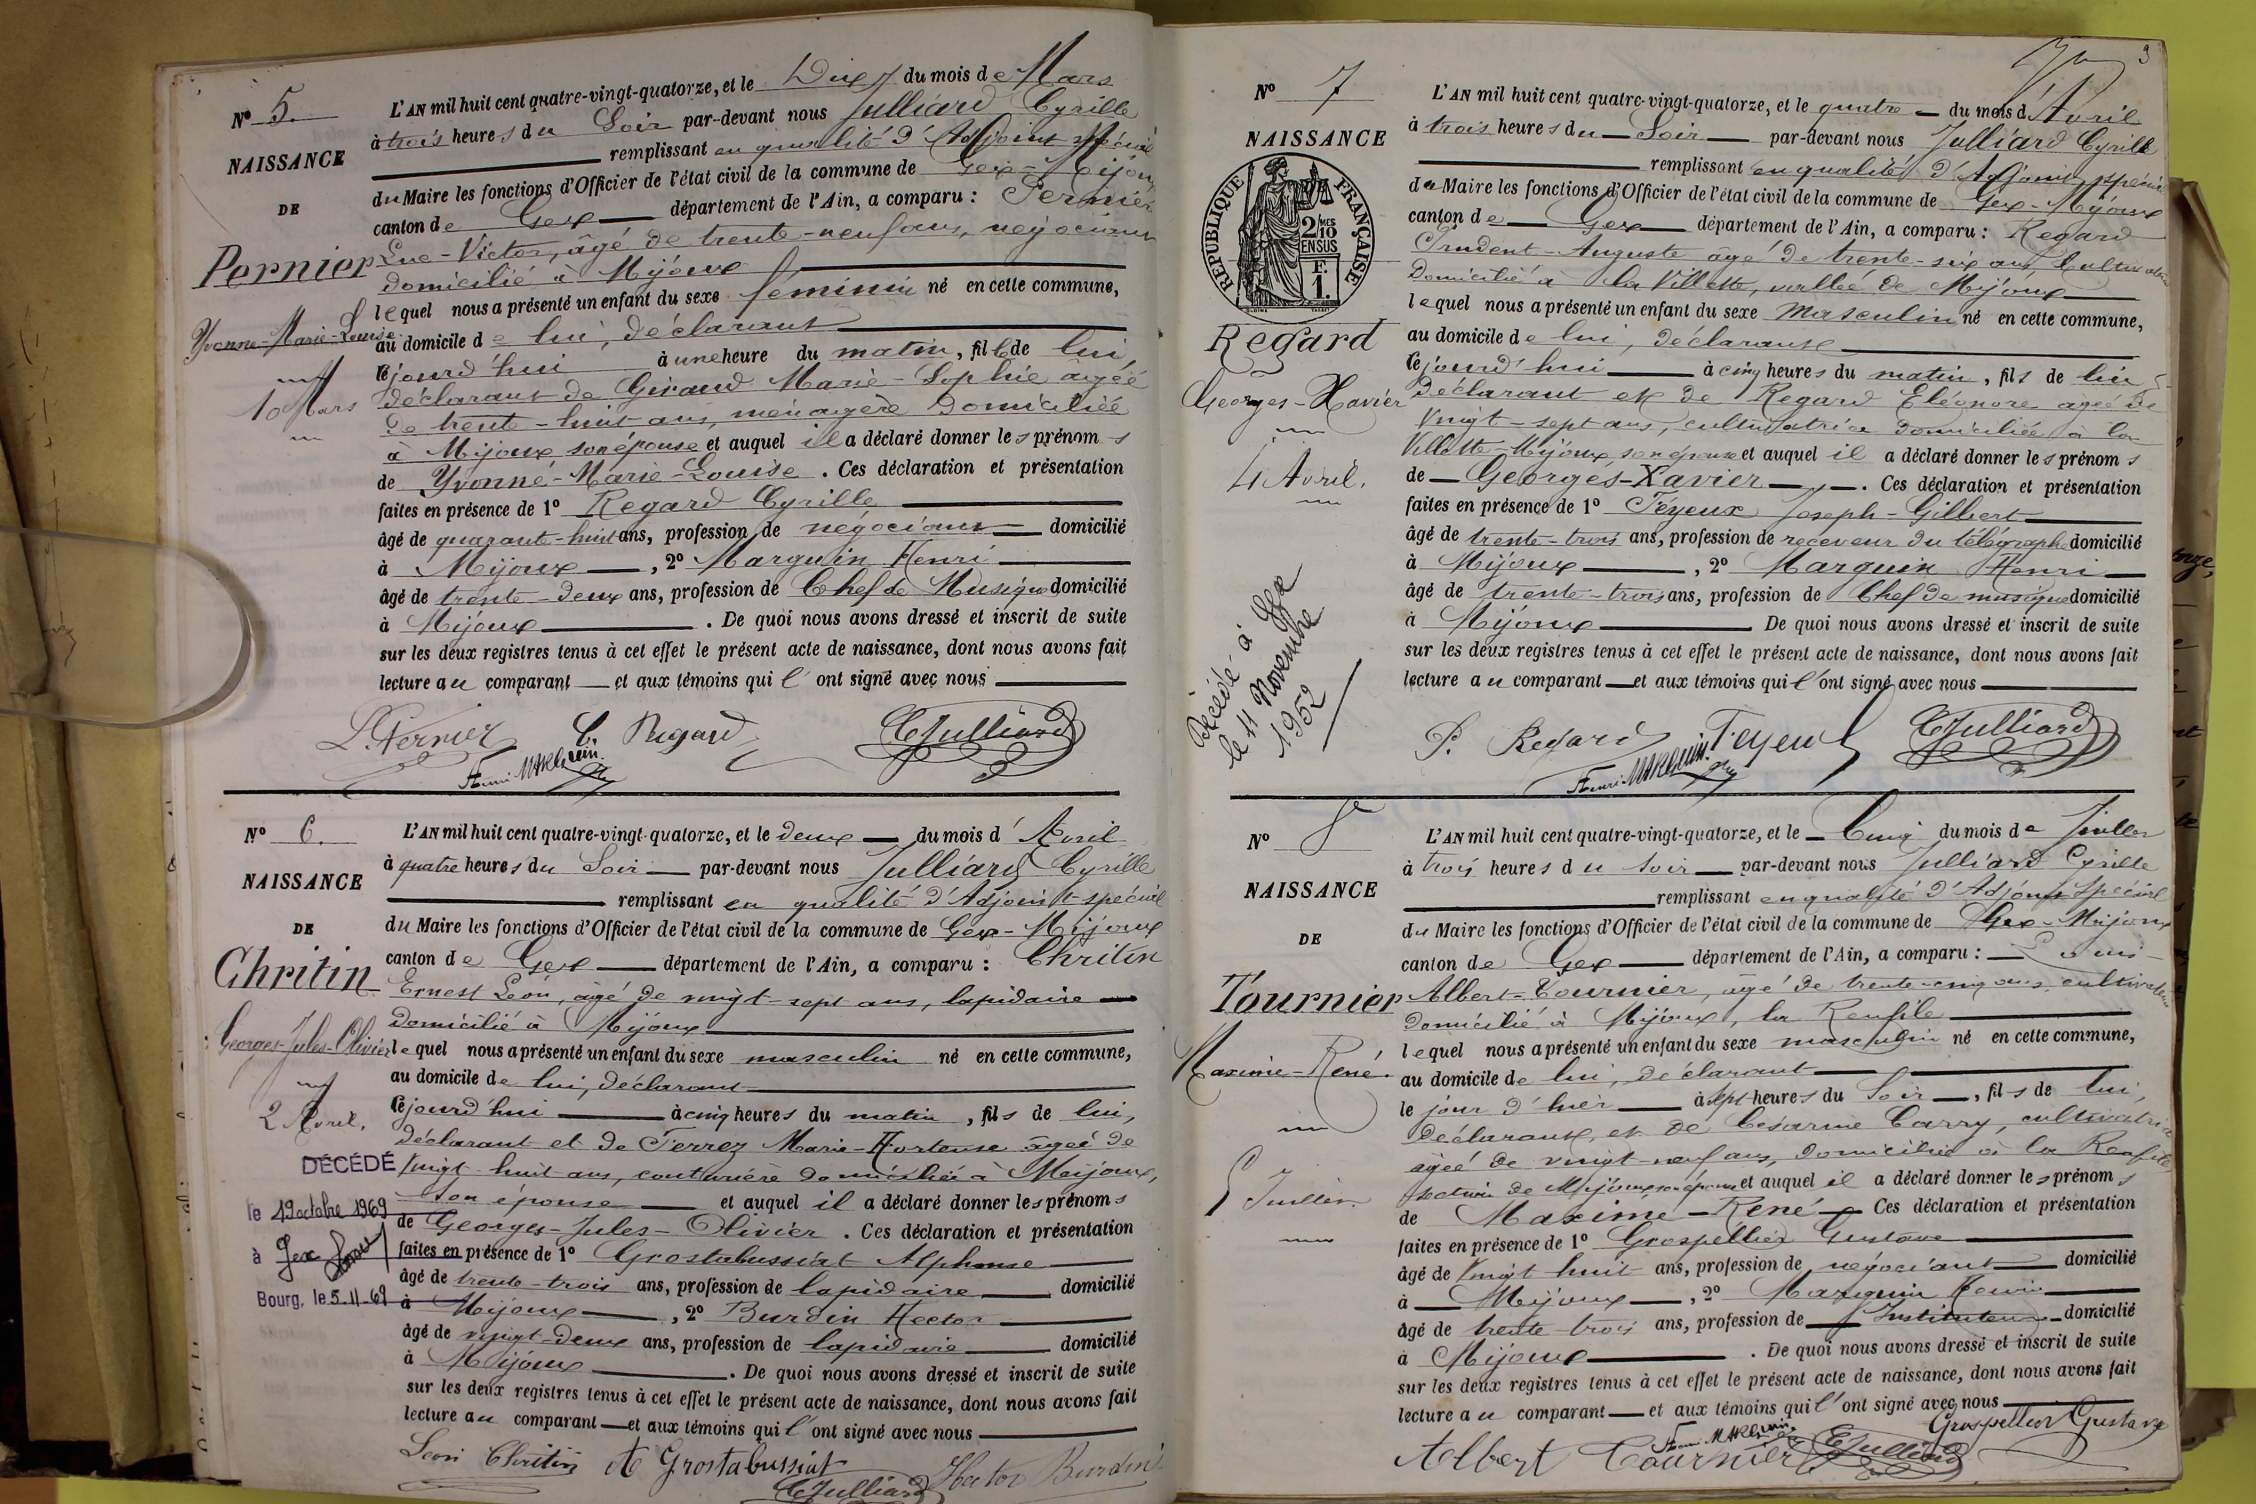 N° 5.
NAISSANCE
DE
Pernier
Yvonne-Marie-Louise
10 Mars
L'AN mil huit cent quatre-vingt-quatorze, et le Dix du mois de Mars
à trois heures du Soir par-devant nous Julliard Cyrille
remplissant en qualité d'Adjoint spécial
du Maire les fonctions d'Officier de l'état civil de la commune de Gex-Mijoux
canton de Gex département de l'Ain, a comparu : Pernier
Luc-Victor, âgé de trente-neuf ans, négociant
domicilié à Mijoux
lequel nous a présenté un enfant du sexe feminin né en cette commune,
au domicile de lui, déclarant
cejourd'hui à une heure du matin, fille de lui,
déclarant de Giraud Marie-Sophie agée
de trente-huit ans, ménagère domiciliée
à Mijoux son épouse et auquel il a déclaré donner les prénoms
de Yvonne-Marie-Louise. Ces déclaration et présentation
faites en présence de 1° Regard Cyrille
âgé de quarante-huit ans, profession de négociant domicilié
à Mijoux, 2° Marguin Henri
âgé de trente-deux ans, profession de Chef de Musique domicilié
à Mijoux. De quoi nous avons dressé et inscrit de suite
sur les deux registres tenus à cet effet le présent acte de naissance, dont nous avons fait
lecture au comparant et aux témoins qui l'ont signé avec nous
L. Pernier C. Regard CJulliard
Henri Marguin
N° 6.
NAISSANCE
DE
Chritin
Georges-Jules-Olivier
2 Avril.
DÉCÉDÉ
le 19 octobre 1969
à Gex
Bourg, le 5-11-69
L'AN mil huit cent quatre-vingt-quatorze, et le deux du mois d'Avril
à quatre heures du Soir par-devant nous Julliard Cyrille
remplissant en qualité d'Adjoint-spécial
du Maire les fonctions d'Officier de l'état civil de la commune de Gex-Mijoux
canton de Gex département de l'Ain, a comparu : Chritin
Ernest Léon, âgé de vingt-sept ans, lapidaire
domicilié à Mijoux
lequel nous a présenté un enfant du sexe masculin né en cette commune,
au domicile de lui, déclarant
cejourd'hui à cinq heures du matin, fils de lui,
déclarant et de Ferrez Marie-Hortense âgée de
vingt-huit ans, couturière domiciliée à Mijoux,
son épouse et auquel il a déclaré donner les prénoms
de Georges-Jules-Olivier. Ces déclaration et présentation
faites en présence de 1° Grostabussiat Alphonse
âgé de trente-trois ans, profession de lapidaire domicilié
à Mijoux, 2° Burdin Hector
âgé de vingt-deux ans, profession de lapidaire domicilié
à Mijoux. De quoi nous avons dressé et inscrit de suite
sur les deux registres tenus à cet effet le présent acte de naissance, dont nous avons fait
lecture au comparant et aux témoins qui l'ont signé avec nous
Léon Chritin A Grostabussiat Hector Burdin
CJulliard
3
N° 7
NAISSANCE
RÉPUBLIQUE FRANÇAISE
2/10 MES
EN SUS
F.
1.
Regard
Georges-Xavier
4 Avril.
Décédé à Gex
le 11 Novembre
1952
L'AN mil huit cent quatre-vingt-quatorze, et le quatre du mois d'Avril
à trois heures du Soir par-devant nous Julliard Cyrille
remplissant en qualité d'Adjoint spécial
du Maire les fonctions d'Officier de l'état civil de la commune de Gex-Mijoux
canton de Gex département de l'Ain, a comparu : Regard
Prudent-Auguste âgé de trente-six ans, Cultivateur
domicilié à la Villette, vallée de Mijoux
lequel nous a présenté un enfant du sexe masculin né en cette commune,
au domicile de lui, déclarant
cejourd'hui à cinq heures du matin, fils de lui
déclarant et de Regard Eléonore agée de
vingt-sept ans, cultivatrice domiciliée à la
Villette-Mijoux, son épouse et auquel il a déclaré donner les prénoms
de Georges-Xavier. Ces déclaration et présentation
faites en présence de 1° Féyeux Joseph-Gilbert
âgé de trente-trois ans, profession de receveur du télégraphe domicilié
à Mijoux, 2° Marguin Henri
âgé de trente-trois ans, profession de Chef de musique domicilié
à Mijoux De quoi nous avons dressé et inscrit de suite
sur les deux registres tenus à cet effet le présent acte de naissance, dont nous avons fait
lecture au comparant et aux témoins qui l'ont signé avec nous
P. Regard Feyeux CJulliard
Henri Marguin
N° 8
NAISSANCE
DE
Tournier
Maxime-René.
5 Juillet.
L'AN mil huit cent quatre-vingt-quatorze, et le Cinq du mois de Juillet
à trois heures du soir par-devant nous Julliard Cyrille
remplissant en qualité d'Adjoint Spécial
du Maire les fonctions d'Officier de l'état civil de la commune de Gex-Mijoux
canton de Gex département de l'Ain, a comparu : Louis-
Albert-Tournier, âgé de trente-cinq ans, cultivateur
domicilié à Mijoux, la Renfile
lequel nous a présenté un enfant du sexe masculin né en cette commune,
au domicile de lui, déclarant
le jour d'hier à sept heures du Soir, fils de lui,
déclarant, et de Césarine Carry, cultivatrice
âgée de vingt-neuf ans, domiciliée à la Renfile
section de Mijoux, son épouse et auquel il a déclaré donner les prénoms
de Maxime-René Ces déclaration et présentation
faites en présence de 1° Grospellier Gustave
âgé de Vingt huit ans, profession de négociant domicilié
à Mijoux, 2° Marguin Henri
âgé de trente trois ans, profession de Instituteur domicilié
à Mijoux. De quoi nous avons dressé et inscrit de suite
sur les deux registres tenus à cet effet le présent acte de naissance, dont nous avons fait
lecture au comparant et aux témoins qui l'ont signé avec nous
Grospellier Gustave
Albert Tournier Henri Marguin CJulliard